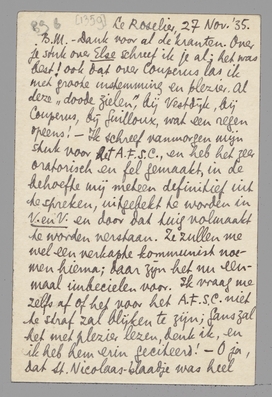 B 9 6 (1359) Le Roselier, 27 Nov. '35.
B.M. - Dank voor al de kranten. Over
je stuk over Else schreef ik je al; het was
best! ook dat over Couperus las ik
met groote instemming en plezier. Al
deze „doode zielen", bij Vestdijk, bij
Couperus, bij Guilloux, wat een regen
opeens! - Ik schreef vanmorgen mijn
stuk voor het A.F.S.C., en heb het zeer
oratorisch en fel gemaakt, in de
behoefte mij meteen definitief uit
te spreken, uitgelekt te worden in
V. en V. en door dat tuig volmaakt
te worden verstaan. Ze zullen me
wel een verkapte kommunist noe-
men hierna; daar zijn het nu een-
maal imbecielen voor. Ik vraag me
zelfs af of het voor het A.F.S.C. niet
te straf zal blijken te zijn; Gans zal
het met plezier lezen, denk ik, en
ik heb hem erin geciteerd! - O ja,
dat St. Nicolaas-blaadje was heel